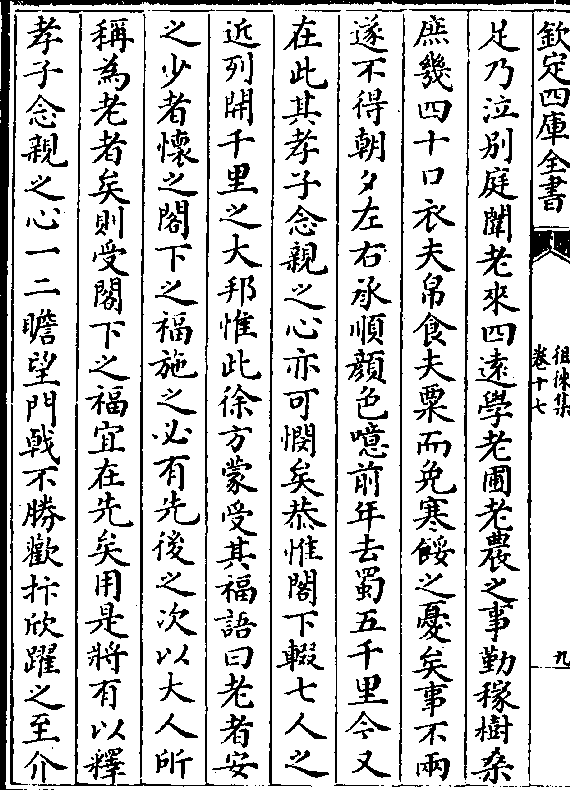 欽定四庫全書
徂徠集
卷十七
九
足乃泣别庭闈老來四遠學老圃老農之事勤稼樹桑
庶幾四十口衣夫帛食夫粟而免寒餒之憂矣事不兩
遂不得朝夕左右承順顔色噫前年去蜀五千里今又
在此其孝子念親之心亦可憫矣恭惟閣下輟七人之
近列開千里之大邦惟此徐方蒙受其福語曰老者安
之少者懷之閣下之福施之必有先後之次以大人所
稱為老者矣則受閣下之福宜在先矣用是將有以釋
孝子念親之心一二瞻望門㦸不勝歡抃欣躍之至介